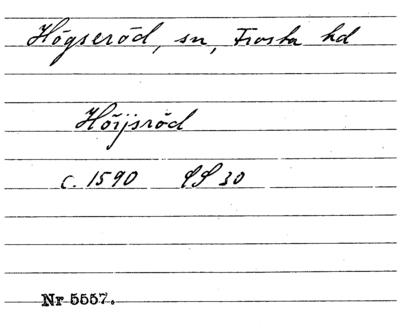 Högseröd, sn, Frosta hd
Höijsröd
c. 1590 SS 30
Nr 5557.